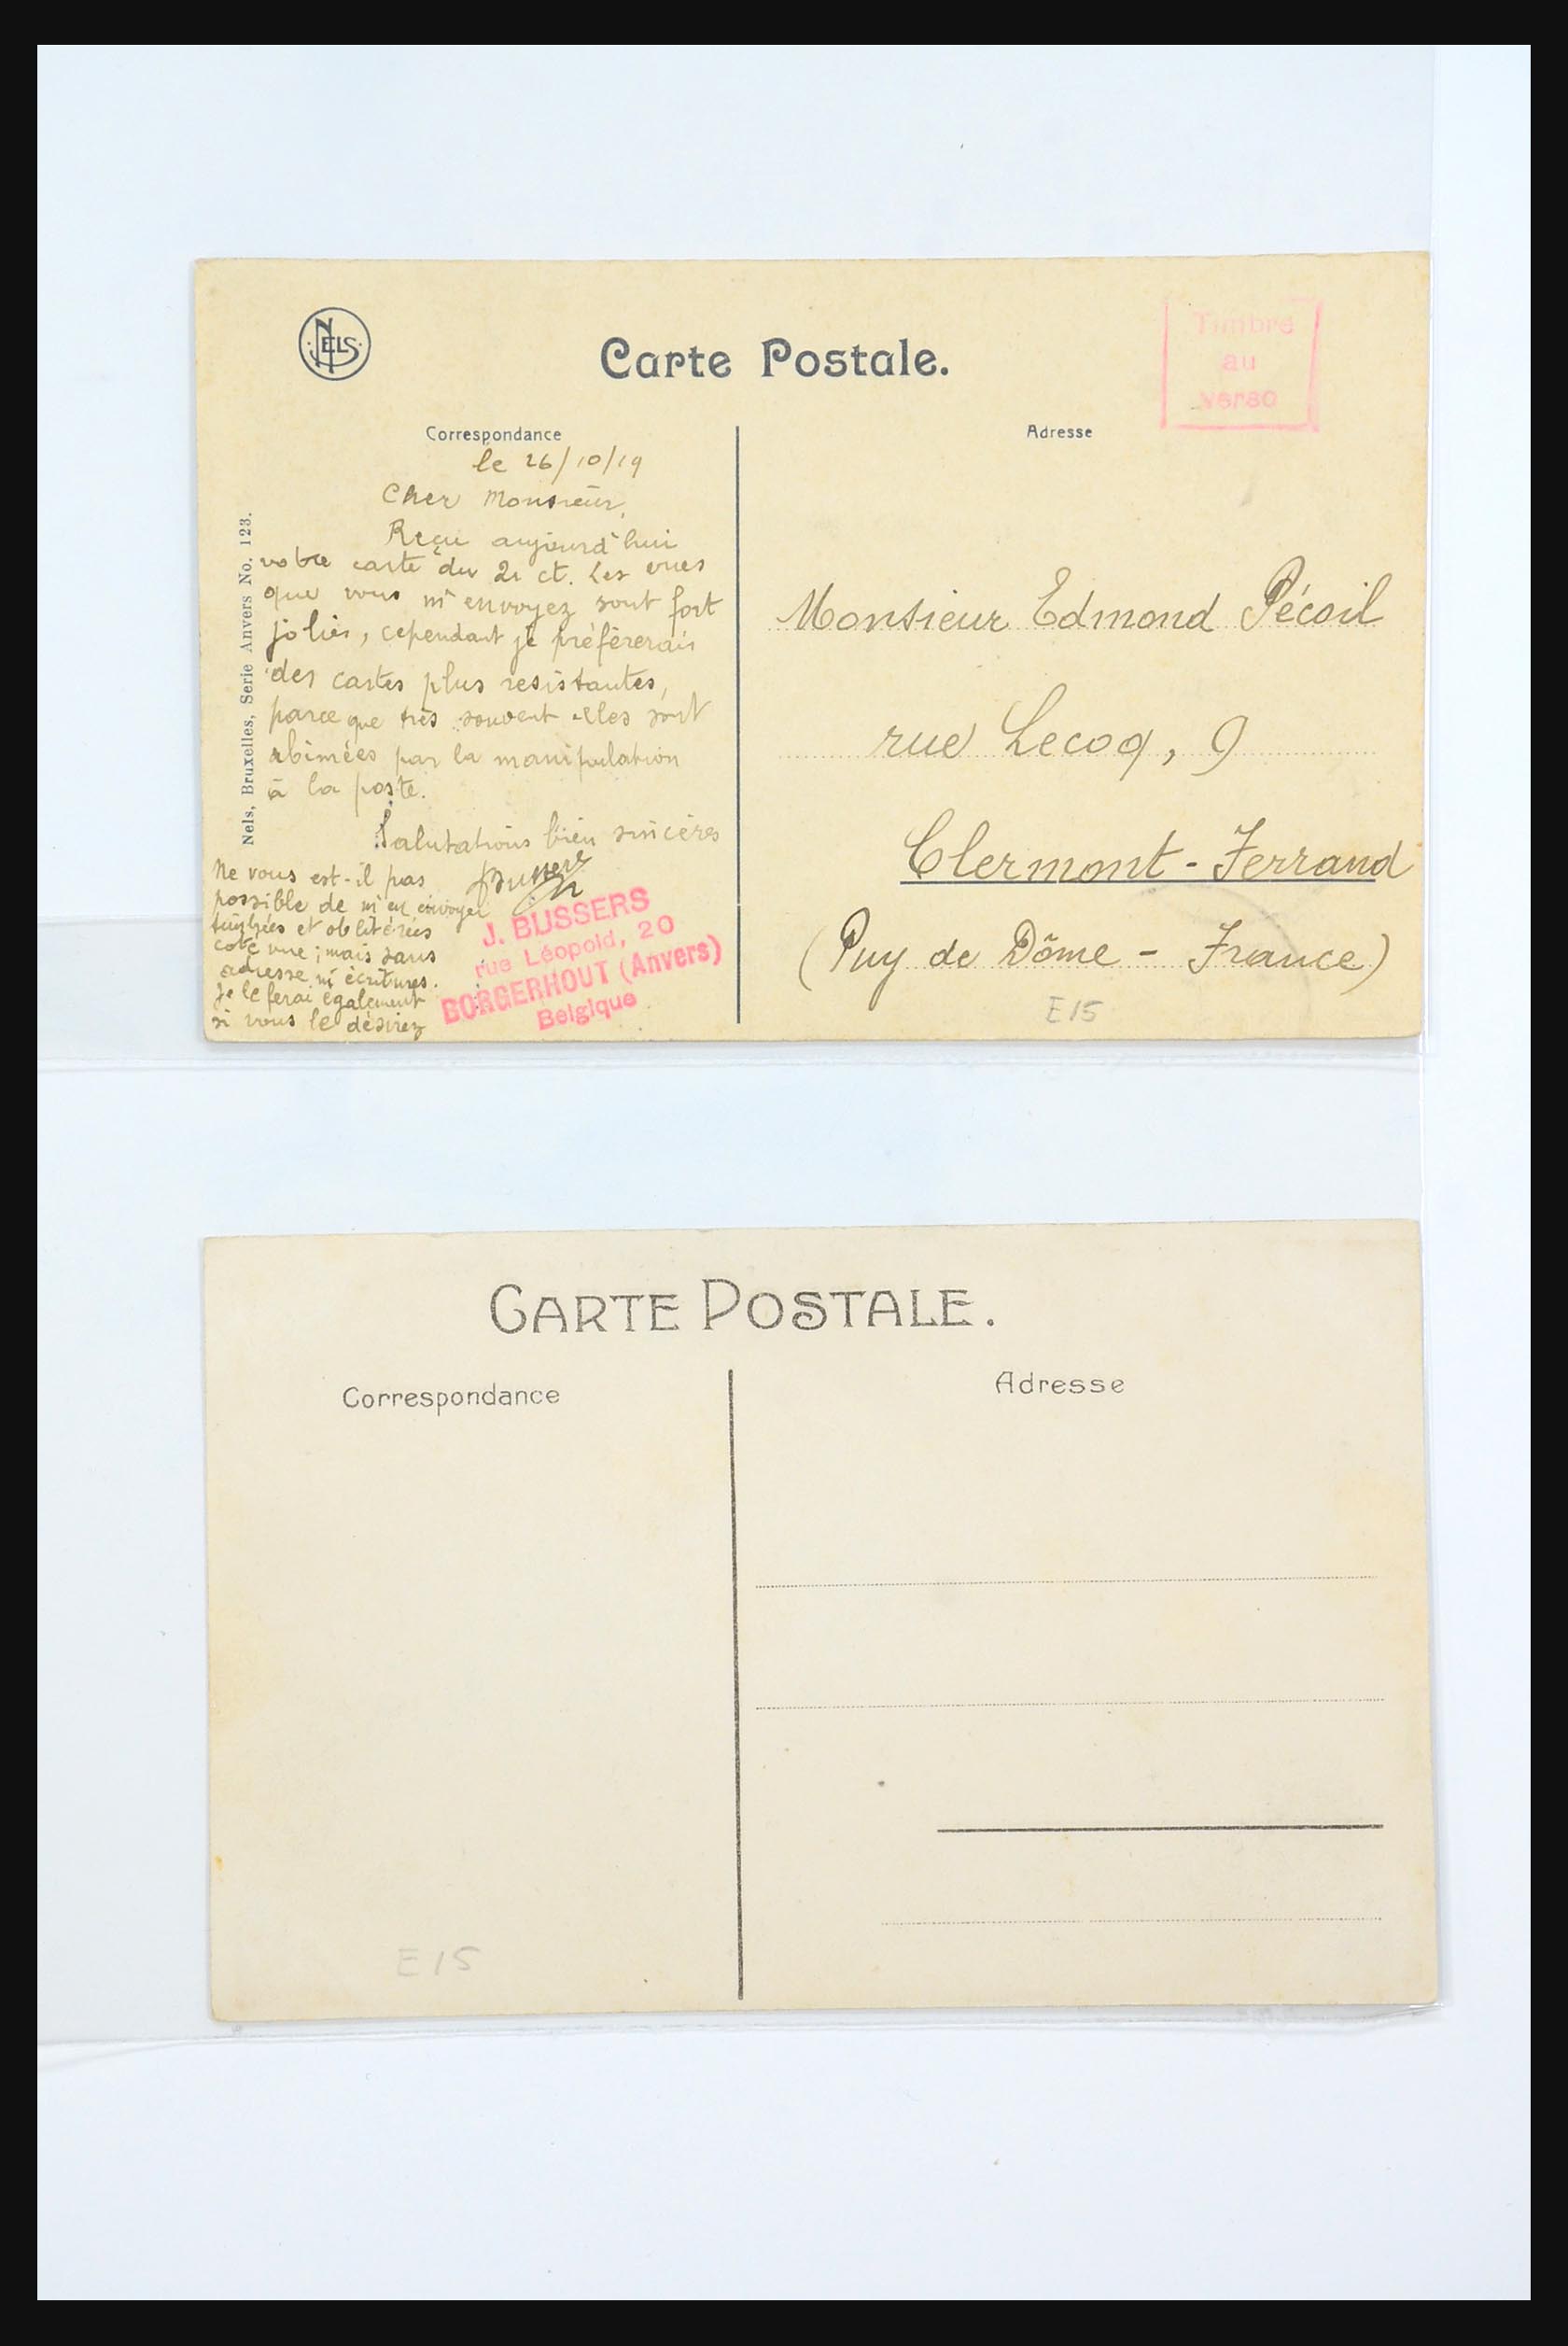 NELS
Carte Postale.
Timbre
au
verso
Correspondance
Adresse
le 26/10/19
Cher Monsieur,
Reçu aujourd'hui
votre carte du 21 ct. Les vues
que vous m'envoyez sont fort
jolies, cependant je préfèrerais
des cartes plus resistantes,
parce que très souvent elles sont
abimées par la manipulation
à la poste.
Salutations bien sincères
Bussers
Ne vous est-il pas
possible de m'en envoyer
timbrées et oblitérées
coté vue; mais sans
adresse ni écritures.
Je le ferai également
si vous le désirez
J. BUSSERS
rue Léopold, 20
BORGERHOUT (Anvers)
Belgique
Nels, Bruxelles, Serie Anvers No. 123.
Monsieur Edmond Pécoil
rue Lecoq, 9
Clermont-Ferrand
(Puy de Dôme - France)
E15
CARTE POSTALE.
Correspondance
Adresse
E15